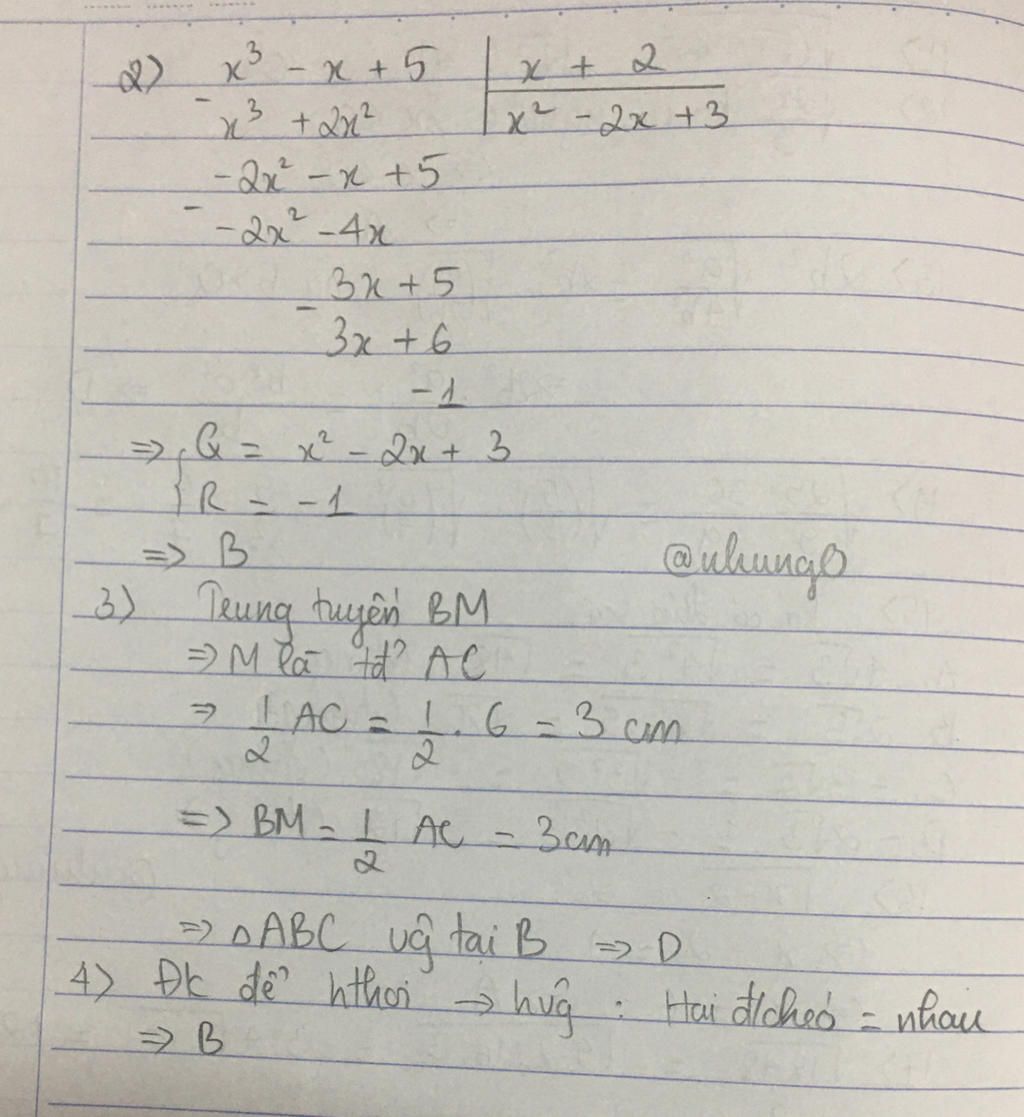 2) x³ - x + 5 | x + 2
- x³ + 2x² | x² - 2x + 3
-2x² - x + 5
- -2x² - 4x
- 3x + 5
3x + 6
-1
=> { Q = x² - 2x + 3
R = -1
=> B
@nhung0
3) Trung tuyến BM
=> M là tđ² AC
=> 1/2 AC = 1/2 . 6 = 3 cm
=> BM = 1/2 AC = 3cm
=> △ABC vg̃ tại B => D
4) Đk để hthoi → hvg̃ : Hai đ/chéo = nhau
=> B